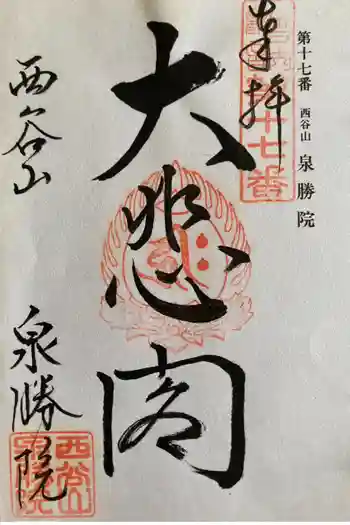 第十七番 西谷山 泉勝院
奉拝
大悲閣
西谷山
泉勝院
十七番
西谷山
泉勝院